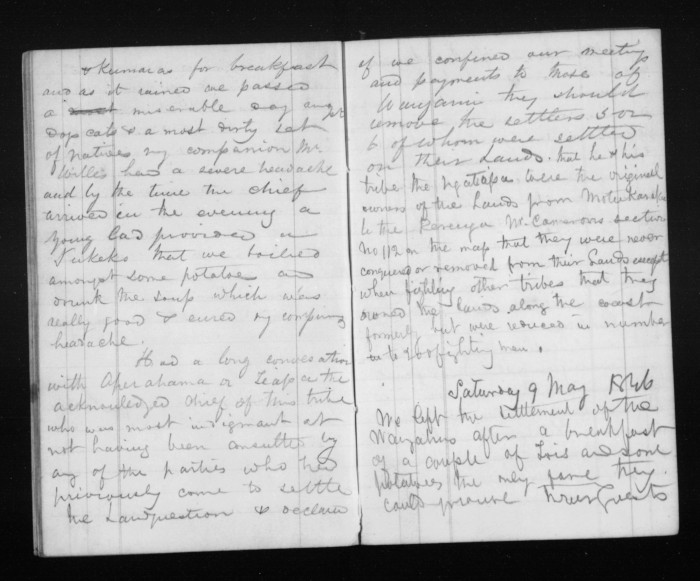 & Kumaras for breakfast
and as it rained we passed
a miserable day amgst
Dogs cats & a most dirty set
of natives my companion Mr
Wills had a severe headache
and by the time the chief
arrived in the evening a
young lad provided a
that we boiled
amongst some potatoes and
drunk the soup which was
really good & cured my companions
headache.
Had a long conversation
with Aperahama or the
acknowledged chief of this tribe
who was most indignant at
not having been consulted by
any of the parties who had
previously come to settle
the Land question & declared
if we confined our meeting
and payments to those at
Wanganui they should
remove the settlers 5 or
6 of whom were settled
on their Lands. that he & his
tribe the were the original
owners of the Lands from
to the McCamerons section
No 112 on the map that they were never
conquered or removed from their Lands except
when fighting other tribes that they
owned the lands along the coast
formerly but were reduced in number
to fighting men.
Saturday 9 May 1846
We left the settlement of the
after a breakfast
of a couple of and some
potatoes the only fare they
could procure